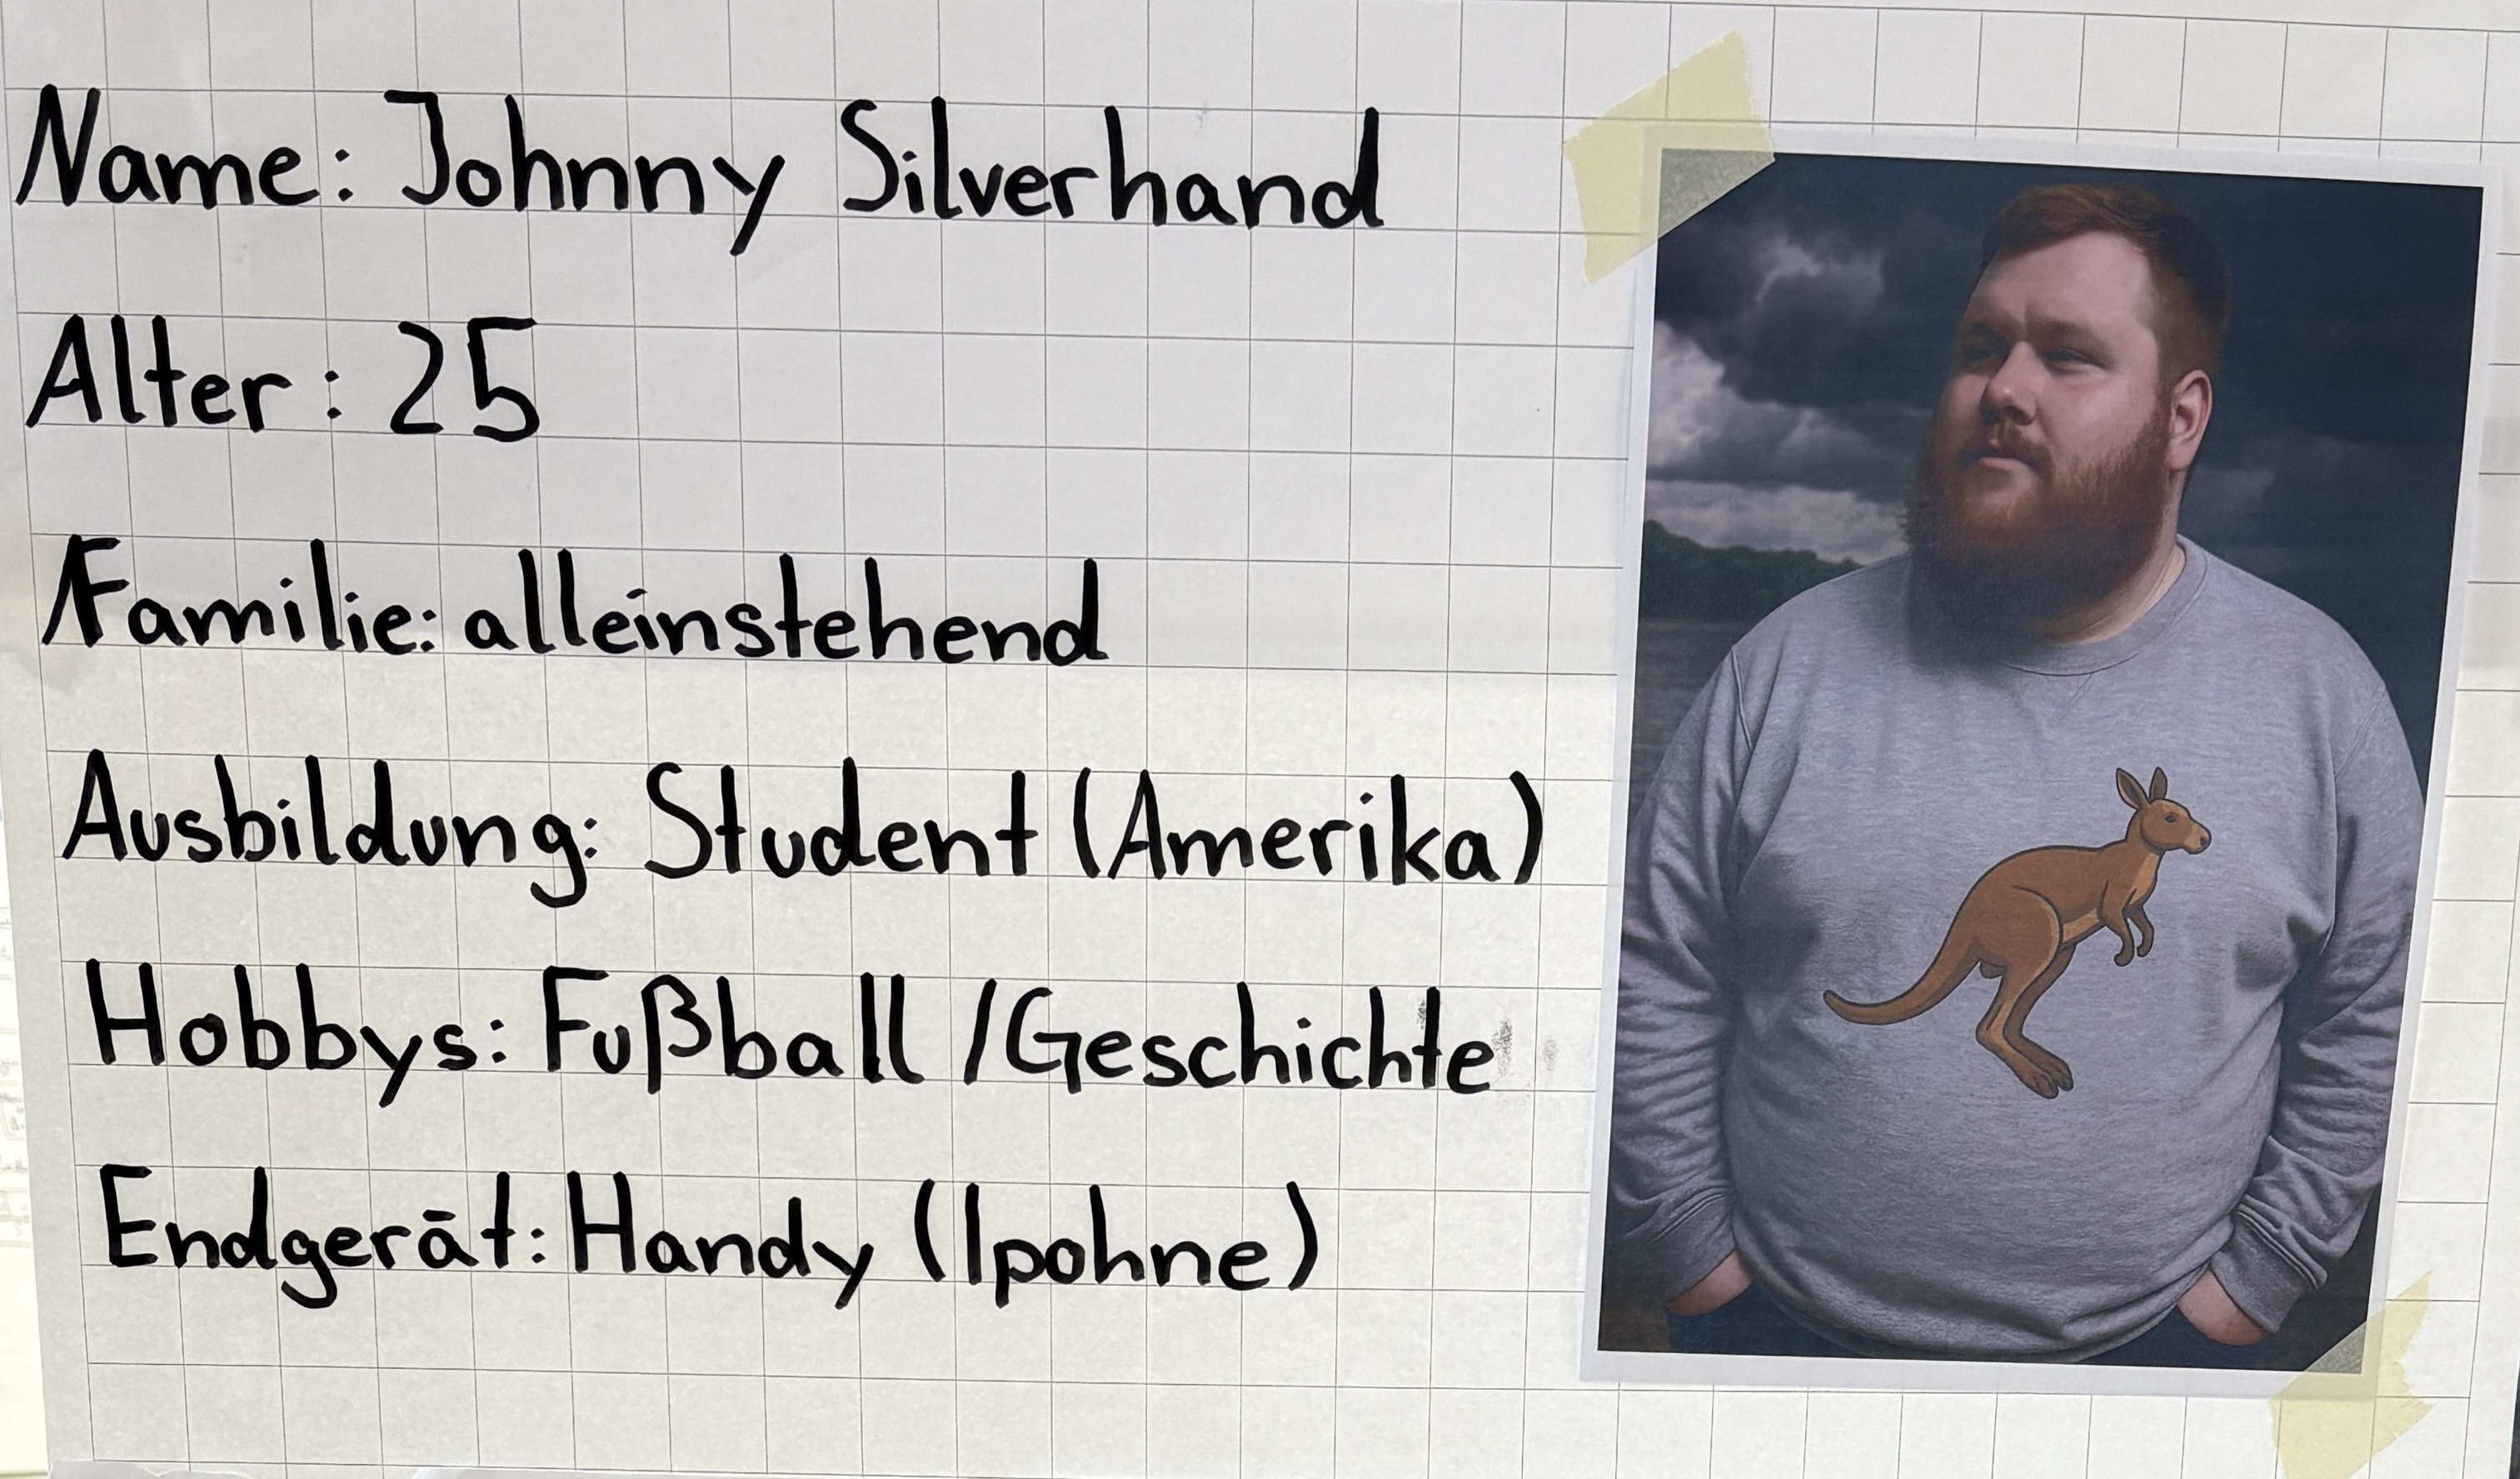 Name: Johnny Silverhand
Alter: 25
Familie: alleinstehend
Ausbildung: Student (Amerika)
Hobbys: Fußball / Geschichte
Endgerät: Handy (Ipohne)